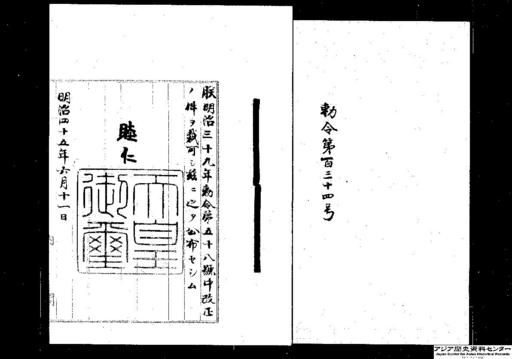 勅令第百三十四号
朕明治三十九年勅令第五十八號中改正
ノ件ヲ裁可シ茲ニ之ヲ公布セシム
睦仁
天皇
御璽
明治四十五年六月十一日
アジア歴史資料センター
Japan Center for Asian Historical Records